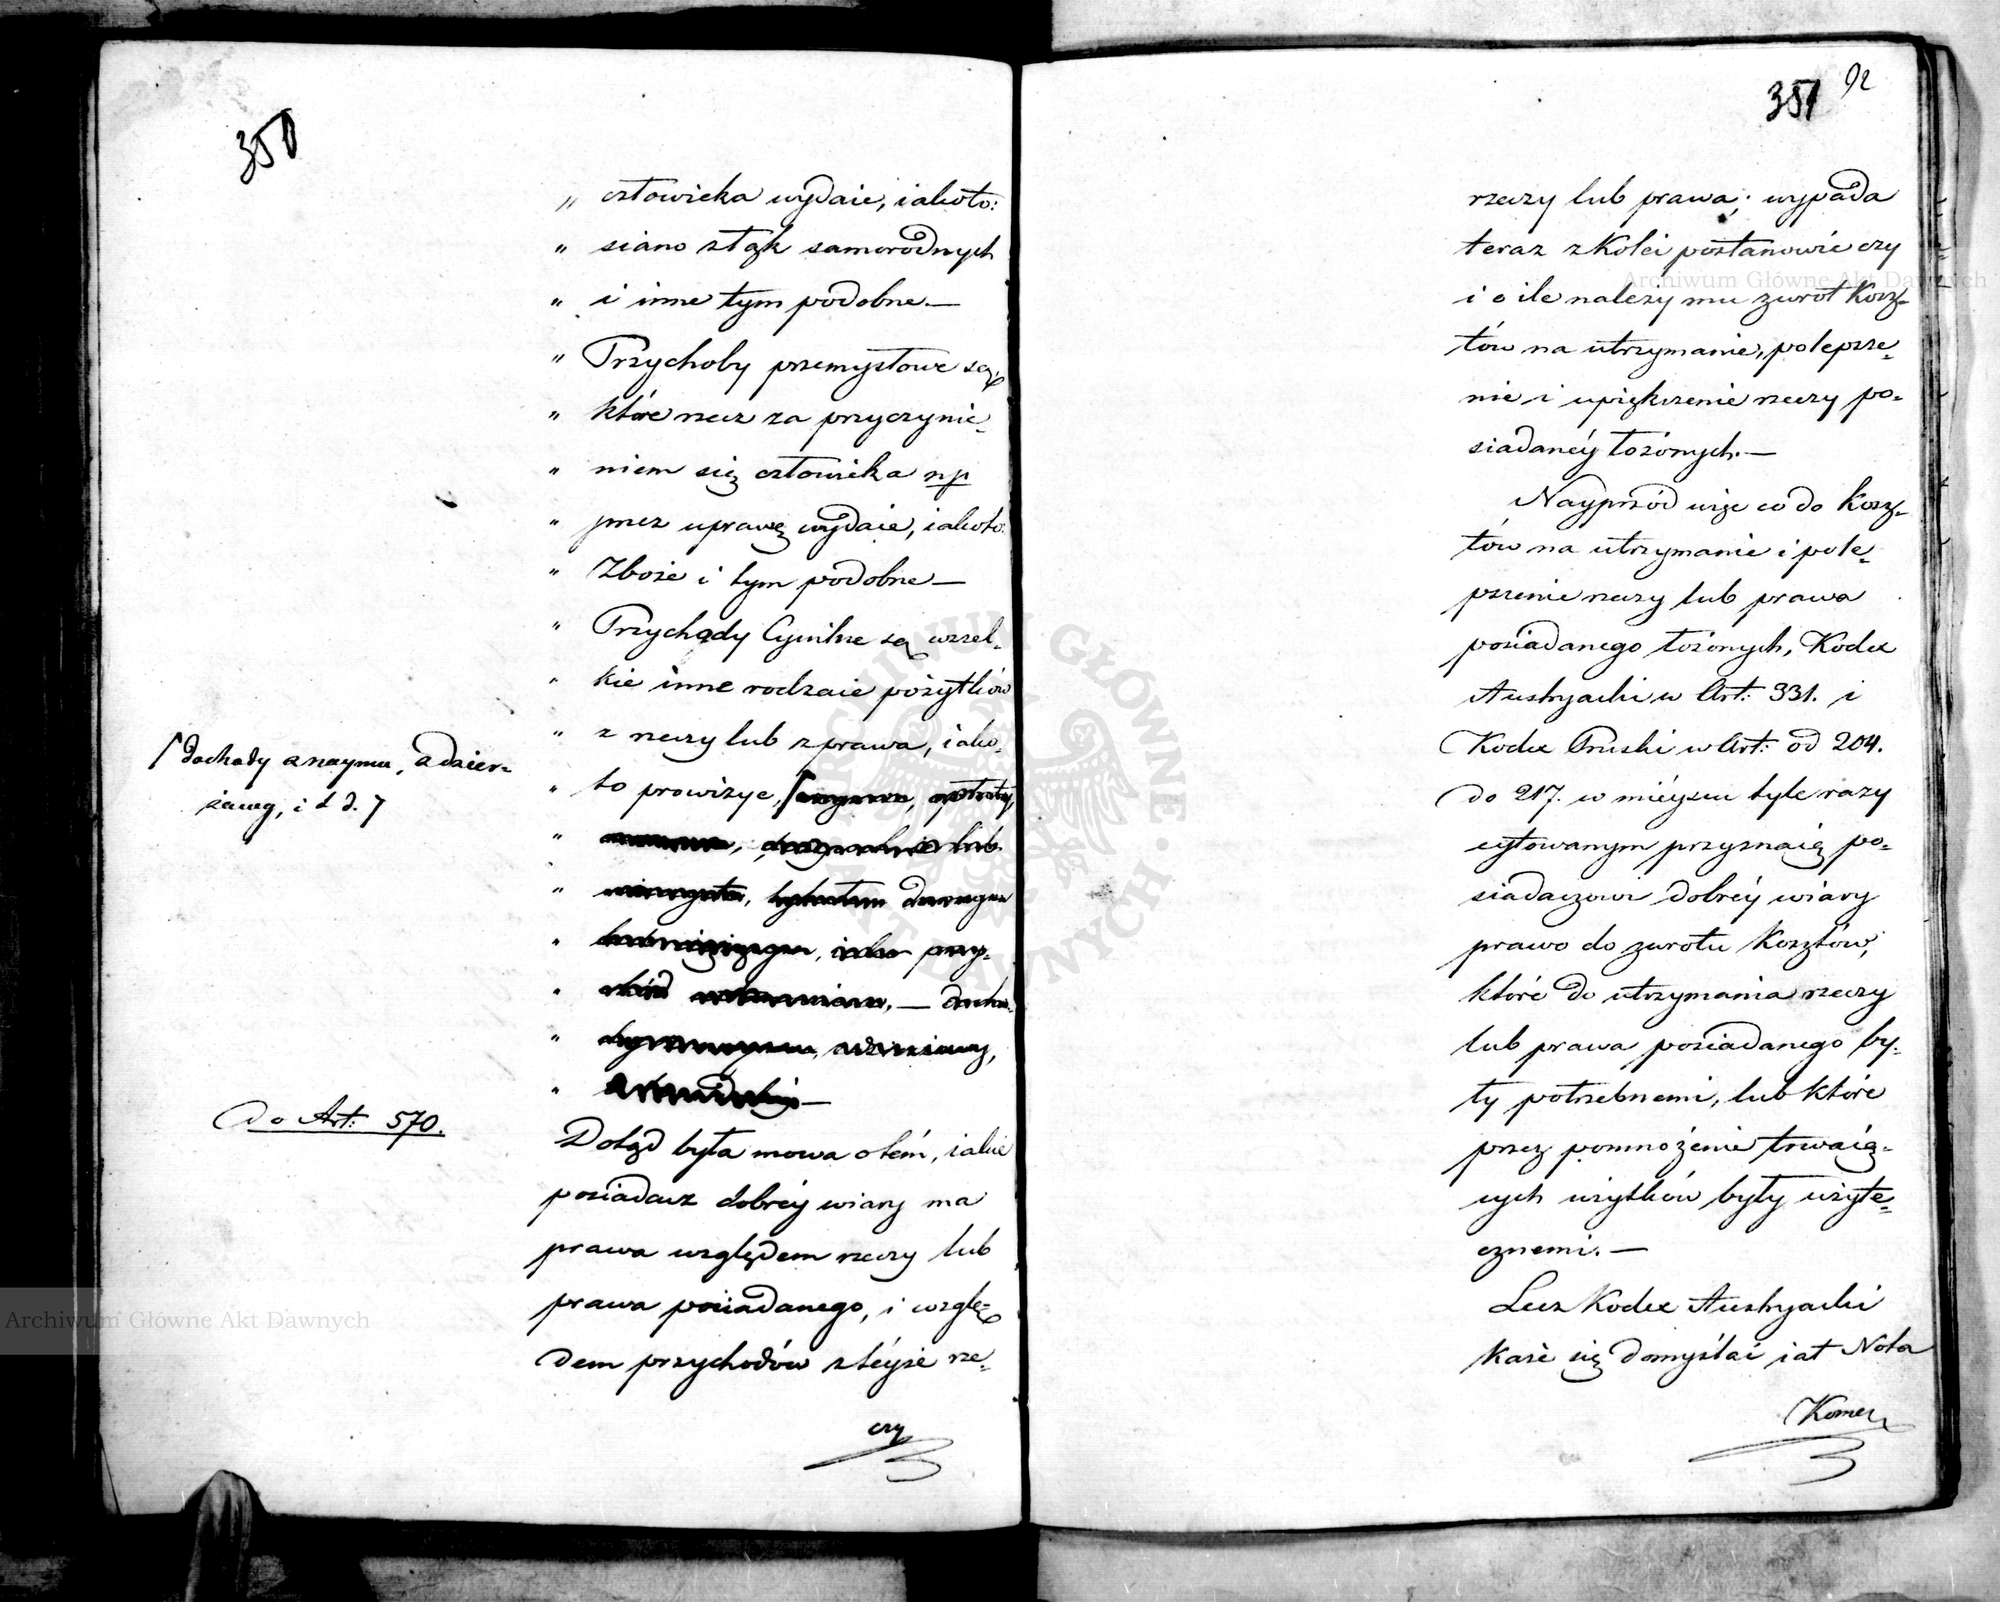 350
„ człowieka wydaie, iakoto:
„ siano z łąk samorodnych
„ i inne tym podobne. —
„ Przychody przemysłowe są,
„ które rzecz za przyczynie„
„ niem się człowieka np
„ przez uprawę wydaie, iakoto:
„ Zboże i tym podobne —
„ Przychody Cywilne są wszel„
„ kie inne rodzaie pożytków
„ z rzeczy lub z prawa, iako„
„ to prowizye,
dochody z naymu, z dzier=
żawy, i t. d.
Do Art: 570.
Dotąd była mowa o tém, iakie
posiadacz dobréy wiary ma
prawa względem rzeczy lub
prawa posiadanego, i wzglę=
dem przychodów z téyże rze„
czy
351 92
rzeczy lub prawa; wypada
teraz z kolei postanowić czy
i o ile należy mu zwrot kosz=
tów na utrzymanie, polepsze„
nie i upiększenie rzeczy po=
siadanéy łożonych. —
Nayprzód więc co do kosz=
tów na utrzymanie i pole„
pszenie rzeczy lub prawa
posiadanego łożonych, Kodex
Austryacki w Art: 331. i
Kodex Pruski w Art: od 204.
do 217. w miéyscu tyle razy
cytowanym przyznaią po=
siadaczowi dobréy wiary
prawo do zwrotu kosztów,
które do utrzymania rzeczy
lub prawa posiadanego by„
ły potrzebnemi, lub które
przez pomnożenie trwaią=
cych użytków były użyte„
cznemi. —
Lecz Kodex Austryacki
każe się domyślać iak Nota
Komer
Archiwum Główne Akt Dawnych
Archiwum Główne Akt Dawnych
ARCHIWUM GŁÓWNE AKT DAWNYCH